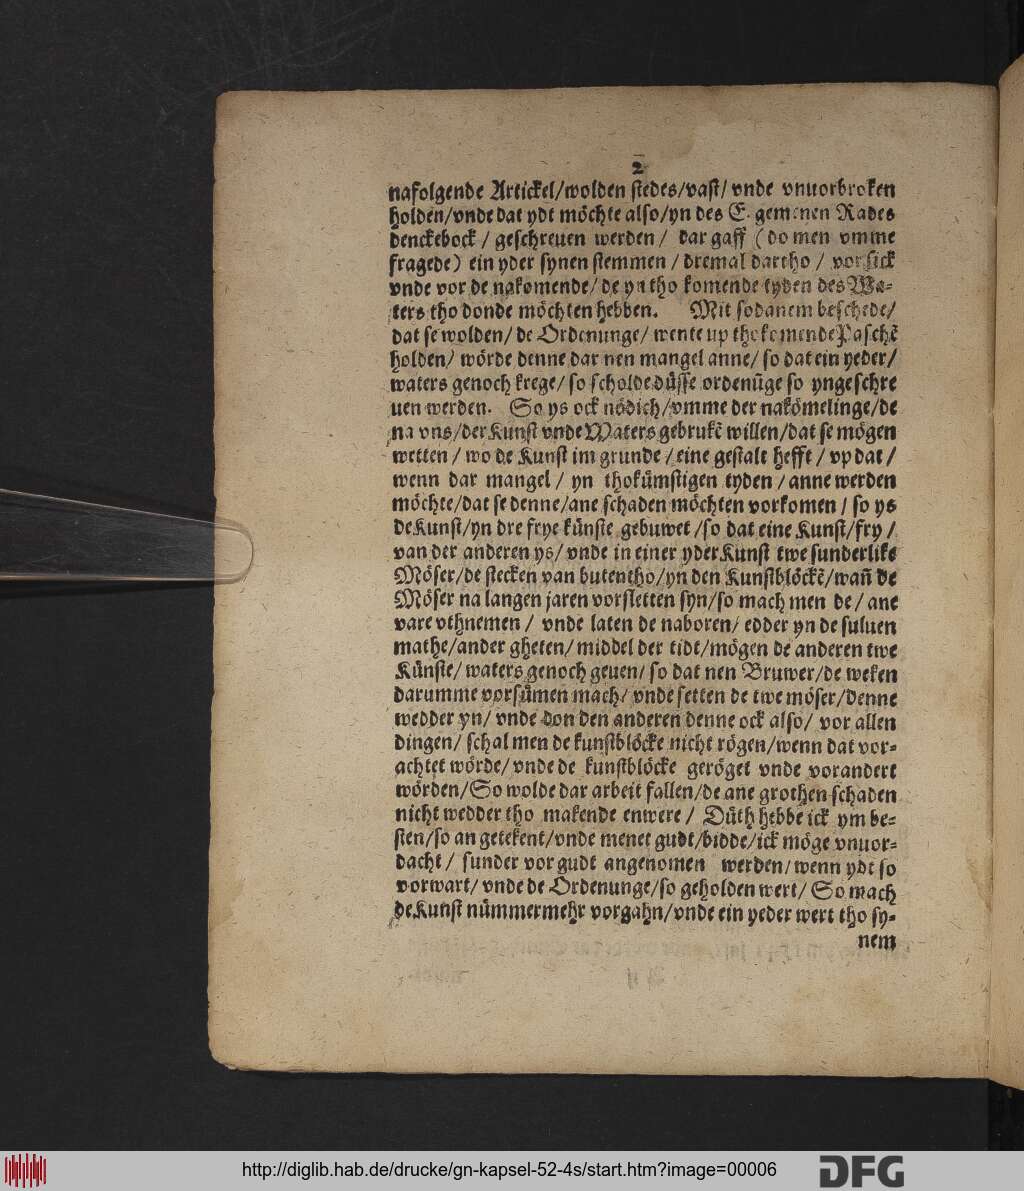 2
nafolgende Artickel/wolden stedes/vast/ vnde vnuorbroken
holden/vnde dat ydt möchte also/yn des E. gemenen Rades
denckebock / geschreuen werden / dar gaff (do men vmme
fragede) ein yder synen stemmen / dremal dartho / vor sick
vnde vor de nakomende/ de yn tho komende tyden des Wa-
ters tho donde möchten hebben. Mit sodanem beschede/
dat se wolden/ de Ordenunge/ wente up thokomende Paschē
holden/ wörde denne dar nen mangel anne/ so dat ein yeder/
waters genoch krege/ so scholde düsse ordenūge so yngeschre
uen werden. So ys ock nödich/vmme der nakömelinge/de
na vns/der Kunst vnde Waters gebrukē willen/dat se mögen
wetten / wo de Kunst im grunde / eine gestalt hefft / vp dat /
wenn dar mangel / yn thokümstigen tyden / anne werden
möchte/dat se denne/ane schaden möchten vorkomen / so ys
de Kunst/yn dre frye künste gebuwet /so dat eine Kunst/fry /
van der anderen ys/ vnde in einer yder Kunst twe sunderlike
Möser/de stecken van butentho/yn den Kunstblöckē/wañ de
Möser na langen jaren vorsletten syn/so mach men de/ ane
vare vthnemen / vnde laten de naboren/ edder yn de suluen
mathe/ander gheten/ middel der tidt/mögen de anderen twe
Künste/ waters genoch geuen/ so dat nen Bruwer/de weken
darumme vorsümen mach/ vnde setten de twe möser/denne
wedder yn/ vnde don den anderen denne ock also/ vor allen
dingen/ schal men de kunstblöcke nicht rögen/wenn dat vor-
achtet wörde/ vnde de kunstblöcke geröget vnde vorandert
wörden/So wolde dar arbeit fallen/de ane grothen schaden
nicht wedder tho makende enwere / Düth hebbe ick ym be-
sten/so an getekent/vnde menet gudt/bidde/ick möge vnuor-
dacht / sunder vor gudt angenomen werden/ wenn ydt so
vorwart/ vnde de Ordenunge/so geholden wert/ So mach
de Kunst nümmermehr vorgahn/vnde ein yeder wert tho sy-
nem
http://diglib.hab.de/drucke/gn-kapsel-52-4s/start.htm?image=00006
DFG